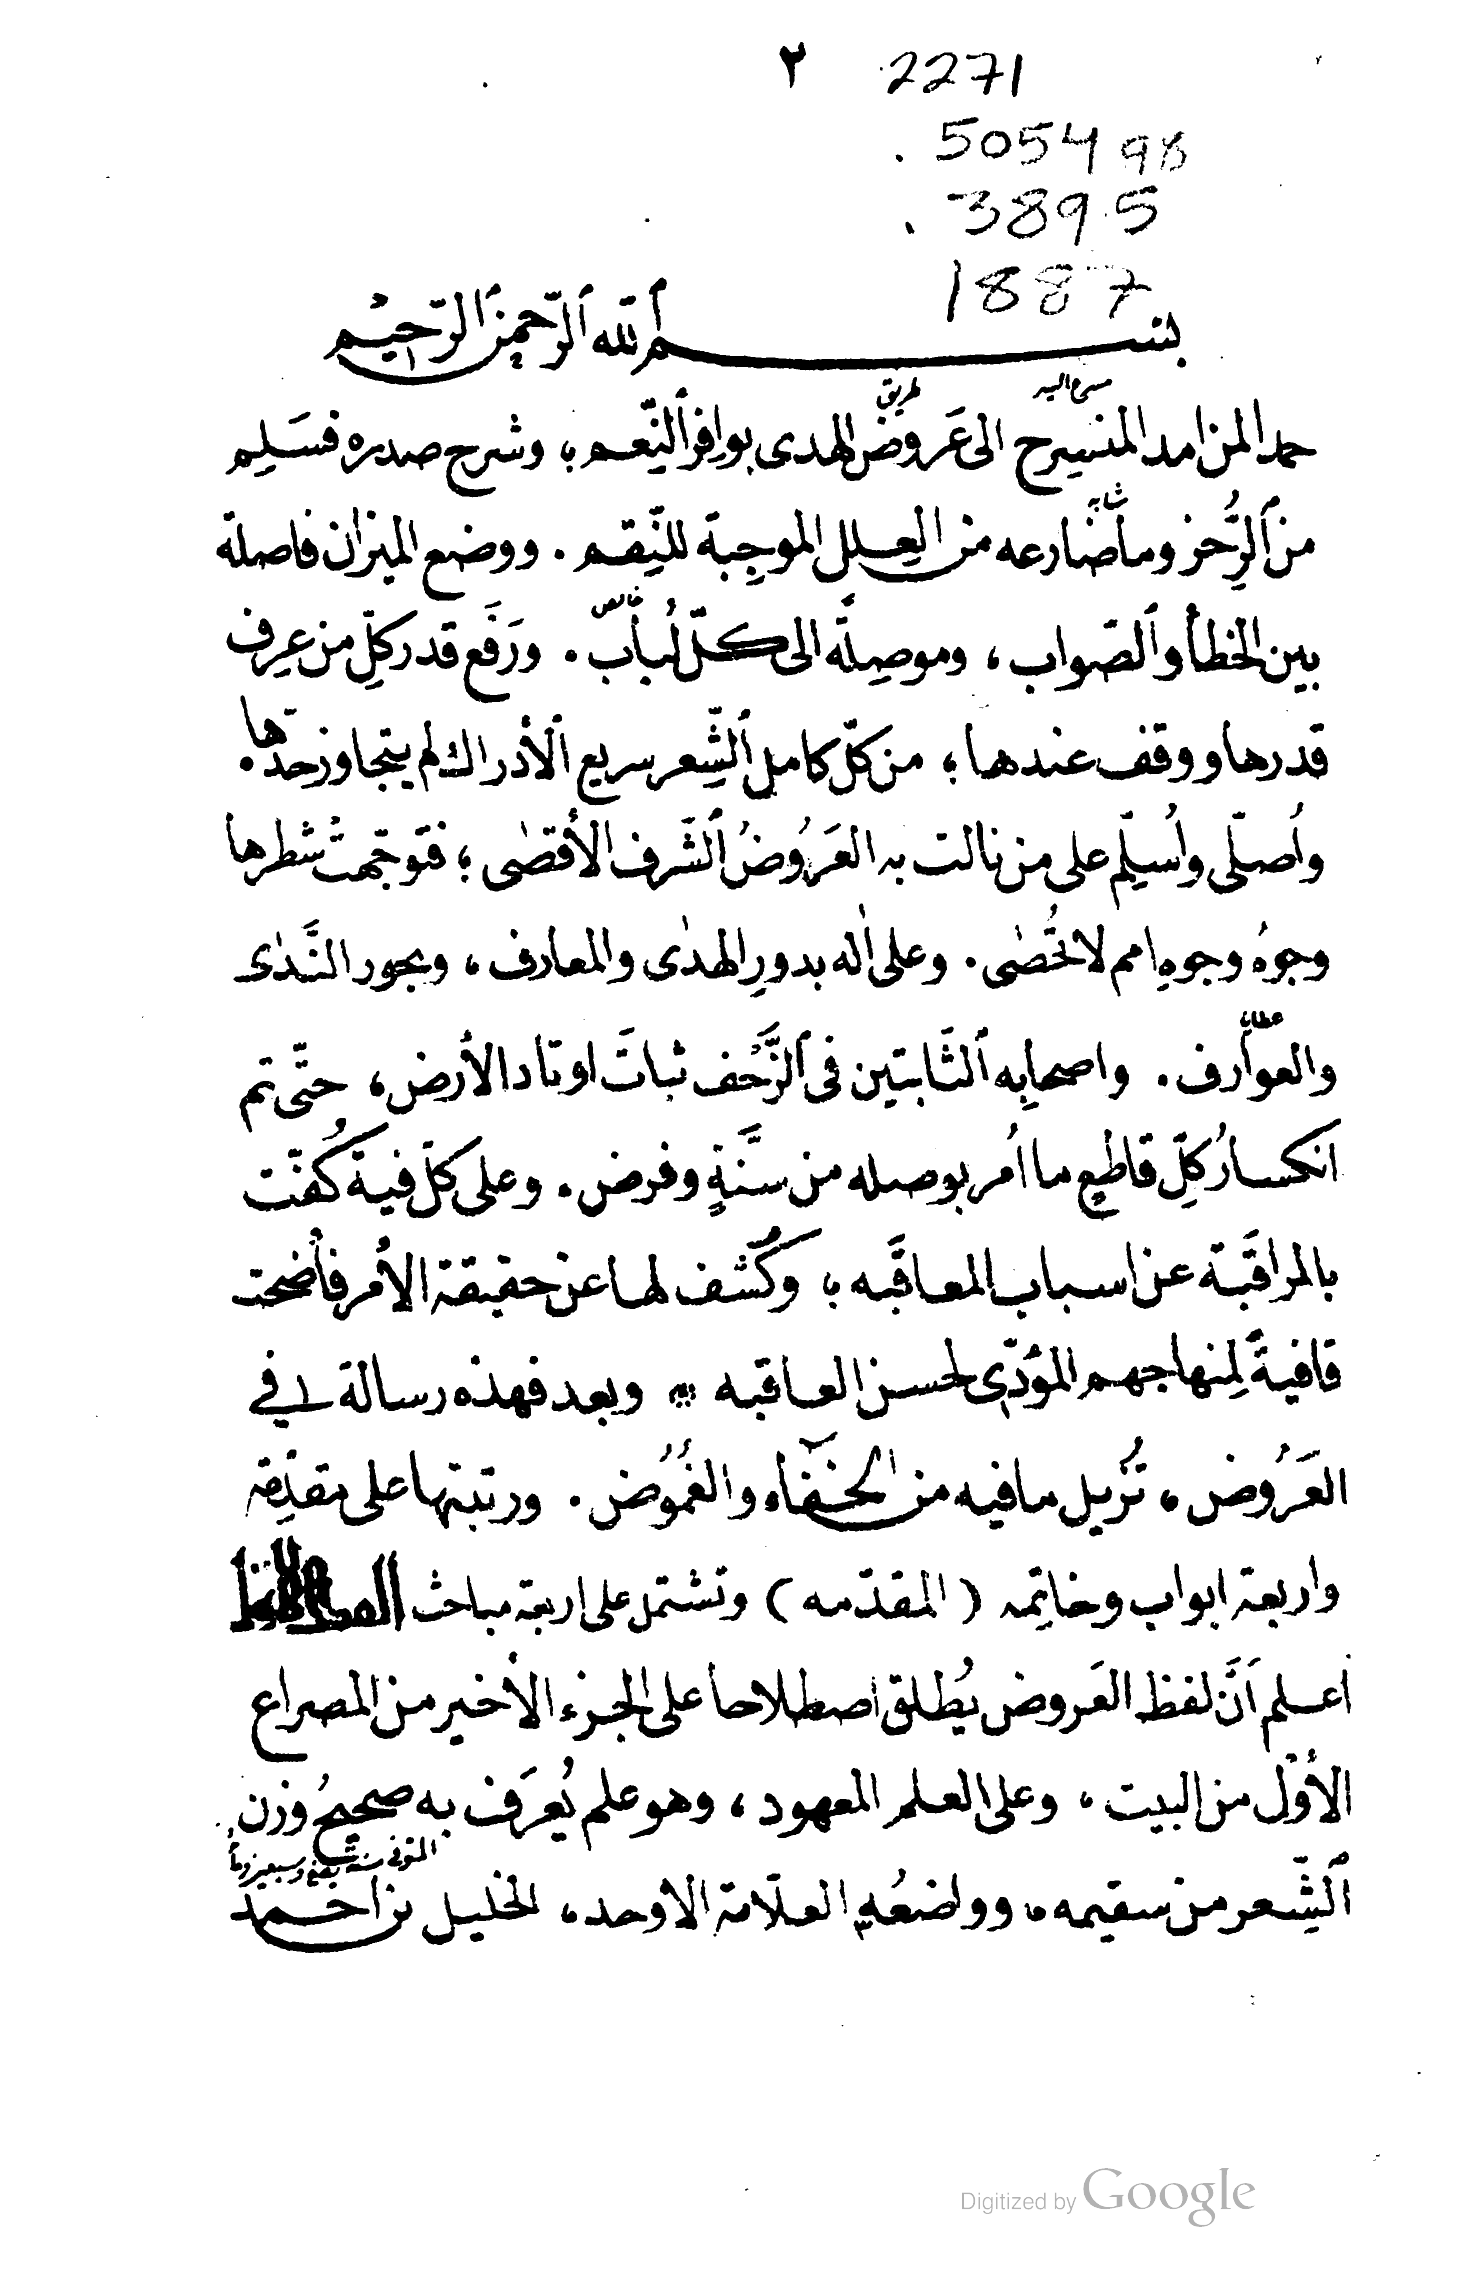 ٢ 2271
. 5054 98
. 3895
1887
بسم ٱلله ٱلرّحمن ٱلرّحيم
طريق
حمدا لمن امد المنسرح الى عَروض الهدى بوافر ٱلنّعم ؛ وشرح صدره فسَلِم
شابه
من ٱلزُّحر وما ضارعه من العلل الموجِبة للنِّقم . ووضع الميزان فاصلة
خالص
بين الخطأ وٱلصّواب ، وموصِلةً الى كلّ لُباب . ورَفع قدر كلِّ من عرف
قدرها ووقف عندها ؛ من كلّ كامل ٱلشِّعر سريع ٱلأدراك لم يتجاوز حدّها .
واُصلّى واُسلِّم على من نالت به العَرُوضُ ٱلشّرف الأقصٰى ؛ فتوجّهتْ شطرها
وجوهُ وجوهِ امم لا تُحصٰى . وعلى اٰله بدورِ الهدٰى والمعارف ، وبحور النَّدٰى
عطايا
والعوارف . واصحابِه ٱلثَّابتين فى ٱلزَّحْف ثباتَ اوتاد الأرض ، حتّى تم
انكسارُ كلِّ قاطعٍ ما اُمر بوصله من سنَّةٍ وفرض . وعلى كلّ فية كُفّت
بالمراقَبة عن اسباب المعاقَبه ؛ وكُشف لها عن حقيقة الأمر فأضحت
قافيةً لمنهاجهم المؤدّى لحسن العاقبه ؞ وبعد فهذه رسالة لى في
العَرُوض ، تُزيل ما فيه من الخفاء والغُمُوض . ورتبتها على مقدّمة
واربعة ابواب وخاتمه ( المقدّمه ) وتشتمل على اربعة مباحث
اعلم اَنَّ لفظ العَروض يُطلق اصطلاحا على الجزء الأخير من المصراع
الأوّل من البيت ، وعلى العلم المعهود ، وهو علم يُعرَف به صحيحُ وزن
المتوفى سنة وسبعين ومأ
ٱلشِّعر من سقيمه ، وواضعُه العلّامة الأوحد ، الخليل بن احمد
Digitized by Google